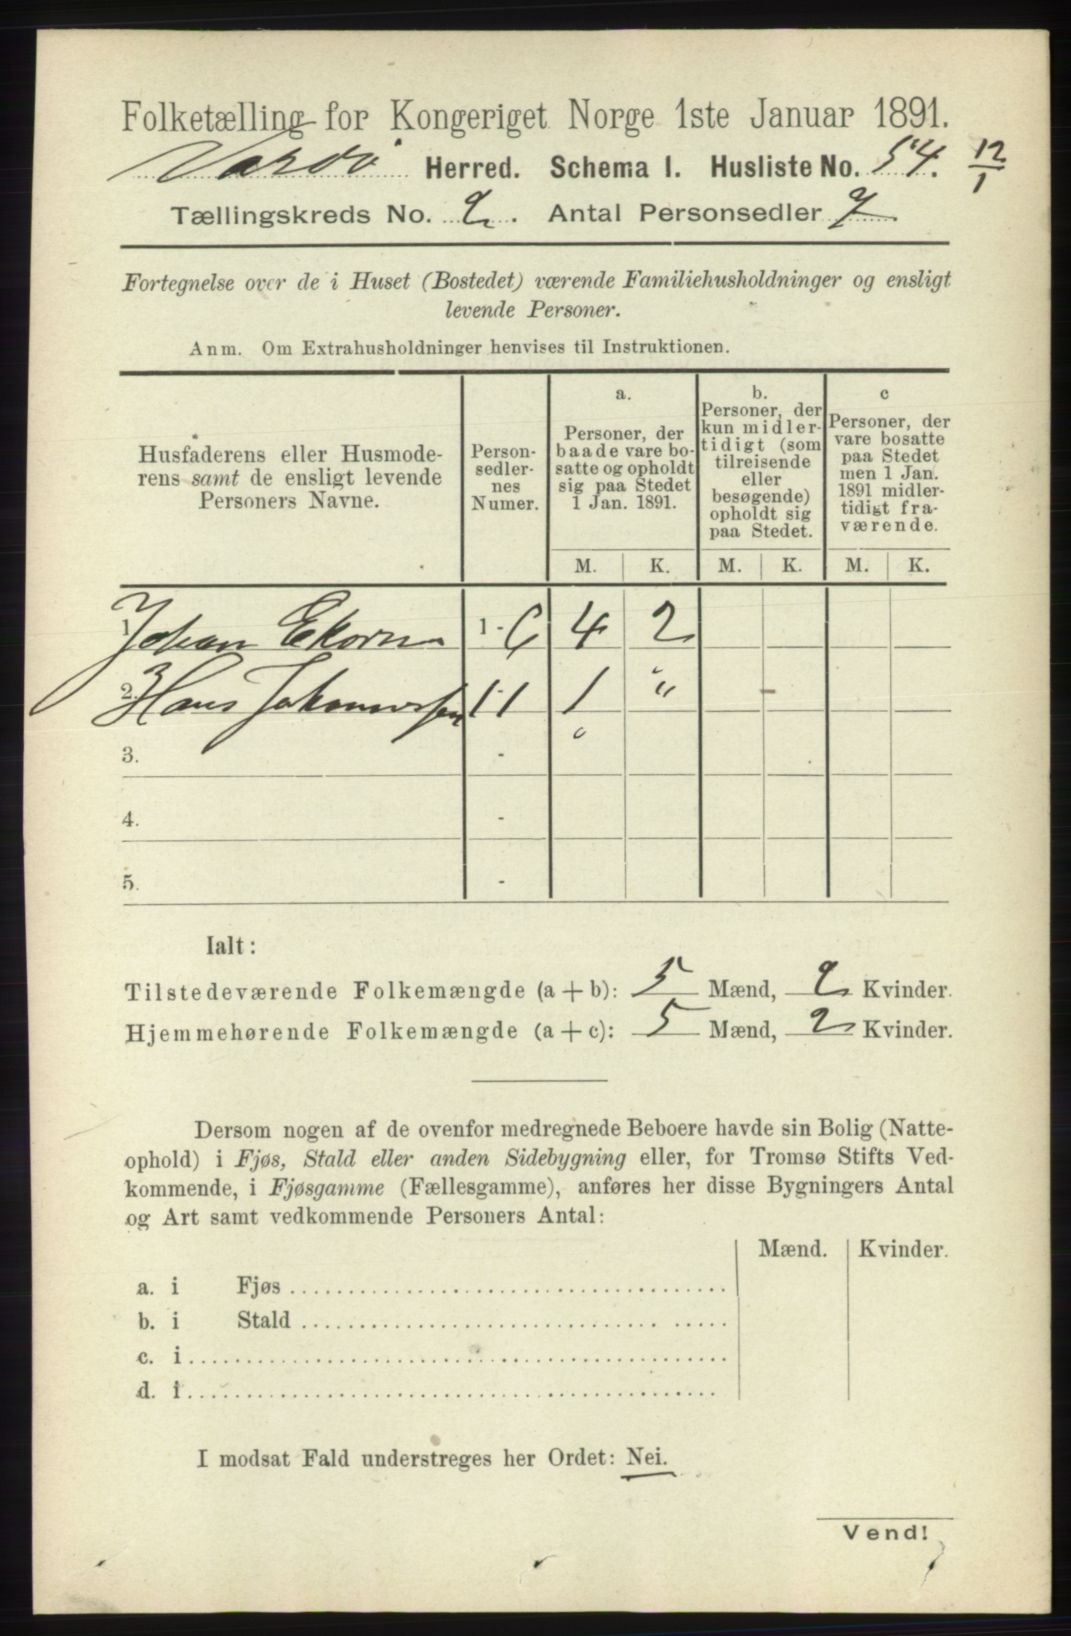 Folketælling for Kongeriget Norge 1ste Januar 1891.
Vardø Herred. Schema I. Husliste No. 54. 12/1
Tællingskreds No. 2. Antal Personsedler 7
Fortegnelse over de i Huset (Bostedet) værende Familiehusholdninger og ensligt
levende Personer.
Anm. Om Extrahusholdninger henvises til Instruktionen.
Husfaderens eller Husmode-
rens samt de ensligt levende
Personers Navne.
Person-
sedler-
nes
Numer.
a.
Personer, der
baade vare bo-
satte og opholdt
sig paa Stedet
1 Jan. 1891.
b.
Personer, der
kun midler-
tidigt (som
tilreisende
eller
besøgende)
opholdt sig
paa Stedet.
c
Personer, der
vare bosatte
paa Stedet
men 1 Jan.
1891 midler-
tidigt fra-
værende.
M. K. M. K. M. K.
1. Johan Ekorn 1 - 6 4 2
2. Hans Johannesen 1 - 1 1 "
3. -
4. -
5. -
Ialt:
Tilstedeværende Folkemængde (a + b): 5 Mænd, 2 Kvinder.
Hjemmehørende Folkemængde (a + c): 5 Mænd, 2 Kvinder.
Dersom nogen af de ovenfor medregnede Beboere havde sin Bolig (Natte-
ophold) i Fjøs, Stald eller anden Sidebygning eller, for Tromsø Stifts Ved-
kommende, i Fjøsgamme (Fællesgamme), anføres her disse Bygningers Antal
og Art samt vedkommende Personers Antal:
Mænd. Kvinder.
a. i Fjøs
b. i Stald
c. i
d. i
I modsat Fald understreges her Ordet: Nei.
Vend!